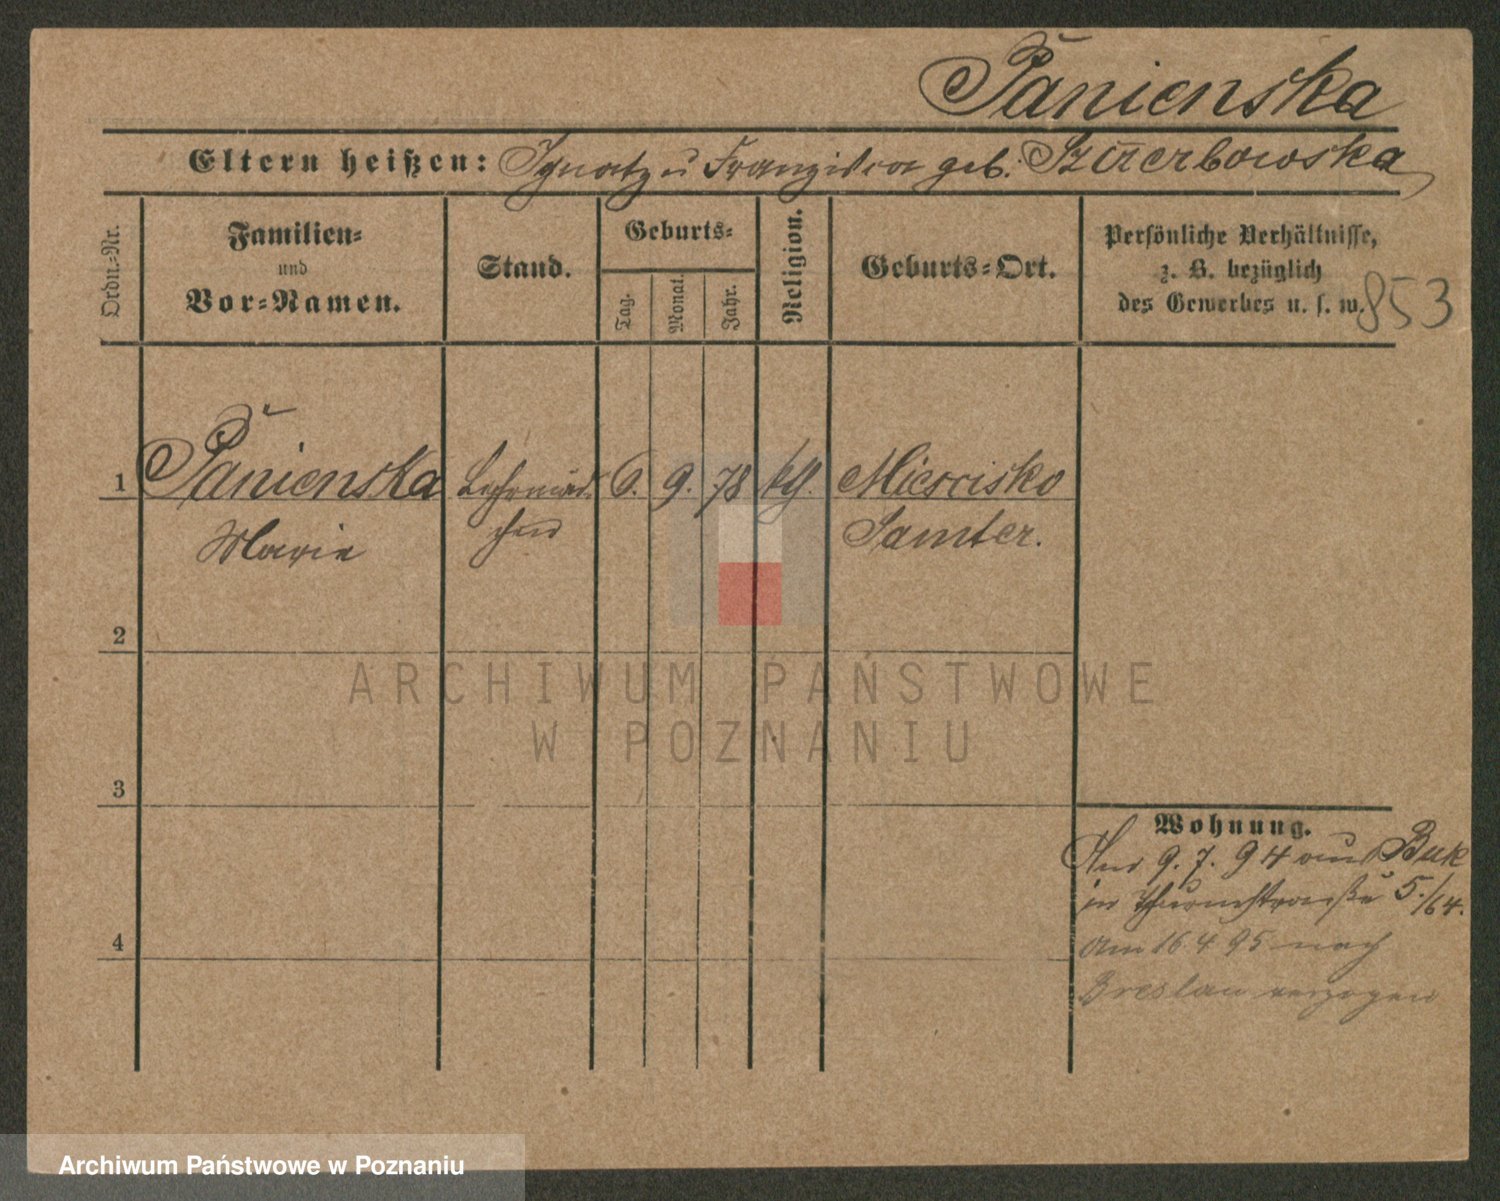 Panienska
Eltern heißen: Ignatz u Franziska geb. Szczerbowska
Ordn.-Nr.
Familien-
und
Vor-Namen.
Stand.
Geburts-
Tag.
Monat.
Jahr.
Religion.
Geburts-Ort.
Persönliche Verhältnisse,
z. B. bezüglich
des Gewerbes u. s. w.
853
1 Panienska Lehrmäd- 6. 9. 78 kth. Miescisko
Marie chen Samter.
2
3
4
ARCHIWUM PAŃSTWOWE
W POZNANIU
Wohnung.
9. 7. 94 aus Buk
in Thurmstraße 5./64.
am 16 4 95 nach
Breslau verzogen
Archiwum Państwowe w Poznaniu